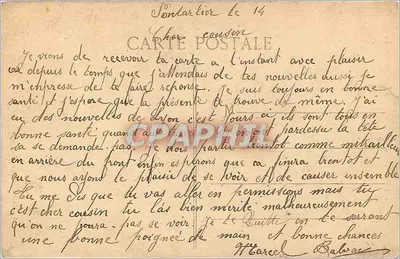 Pontarlier le 14
CARTE POSTALE
Cher cousin
Je viens de recevoir ta carte a l'instant avec plaisir
car depuis le temps que j'attendais de tes nouvelles aussi je
m'empresse de te faire réponse. Je suis toujours en bonne
santé et j'espère que la présente te trouve de même. J'ai
eu des nouvelles de Lyon c'est jours ci ils sont tous en
bonne santé quant a moi par dessu la tête
sa se demande pas je nous partir bientot comme mitrailleur
en arrière du front enfin espérons que ca finira bientot et
que nous ayons le plaisir de se voir et de causer ensemble
Tu me dis que tu vas aller en permissions mais tu
c'est cher cousin tu l'as bien mérité malheureusement
qu'on ne poura pas se voir Je te quitte en te serrant
une bonne poignée de main et bonne chances
Marcel
CPAPHIL